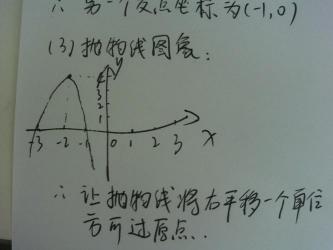 ∴ 另一个交点坐标为(-1,0)
(3)抛物线图象:
y
4
3
2
1
-3 -2 -1 0 1 2 3 x
∴ 让抛物线将右平移一个单位
方可过原点.